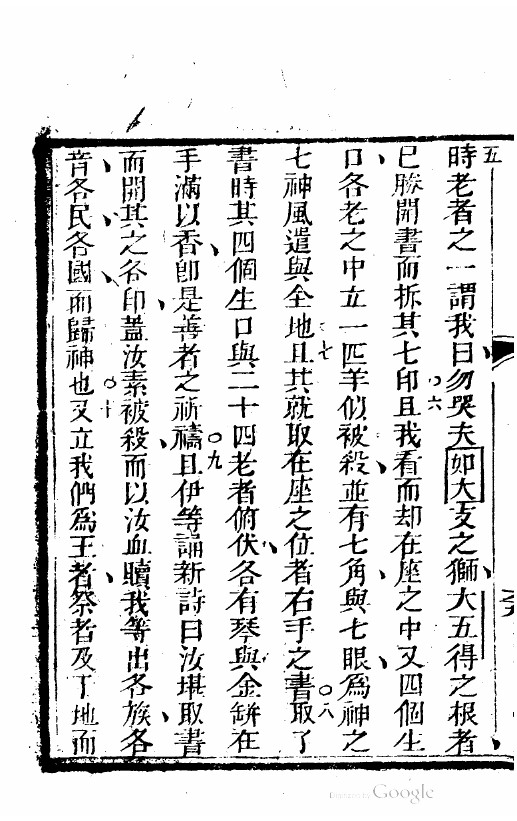 五
時老者之一謂我曰勿哭夫卯大支之獅大五得之根者
已勝開書而拆其七印且我看而却在座之中又四個生
○六
口各老之中立一匹羊似被殺並有七角與七眼爲神之
七神風遣與全地且其就取在座之位者右手之書取了
○七
○八
書時其四個生口與二十四老者俯伏各有琴與金缾在
手滿以香卽是善者之祈禱且伊等誦新詩曰汝堪取書
○九
而開其之各印蓋汝素被殺而以汝血贖我等出各族各
音各民各國而歸神也又立我們爲王者祭者及于地而
○十
Google